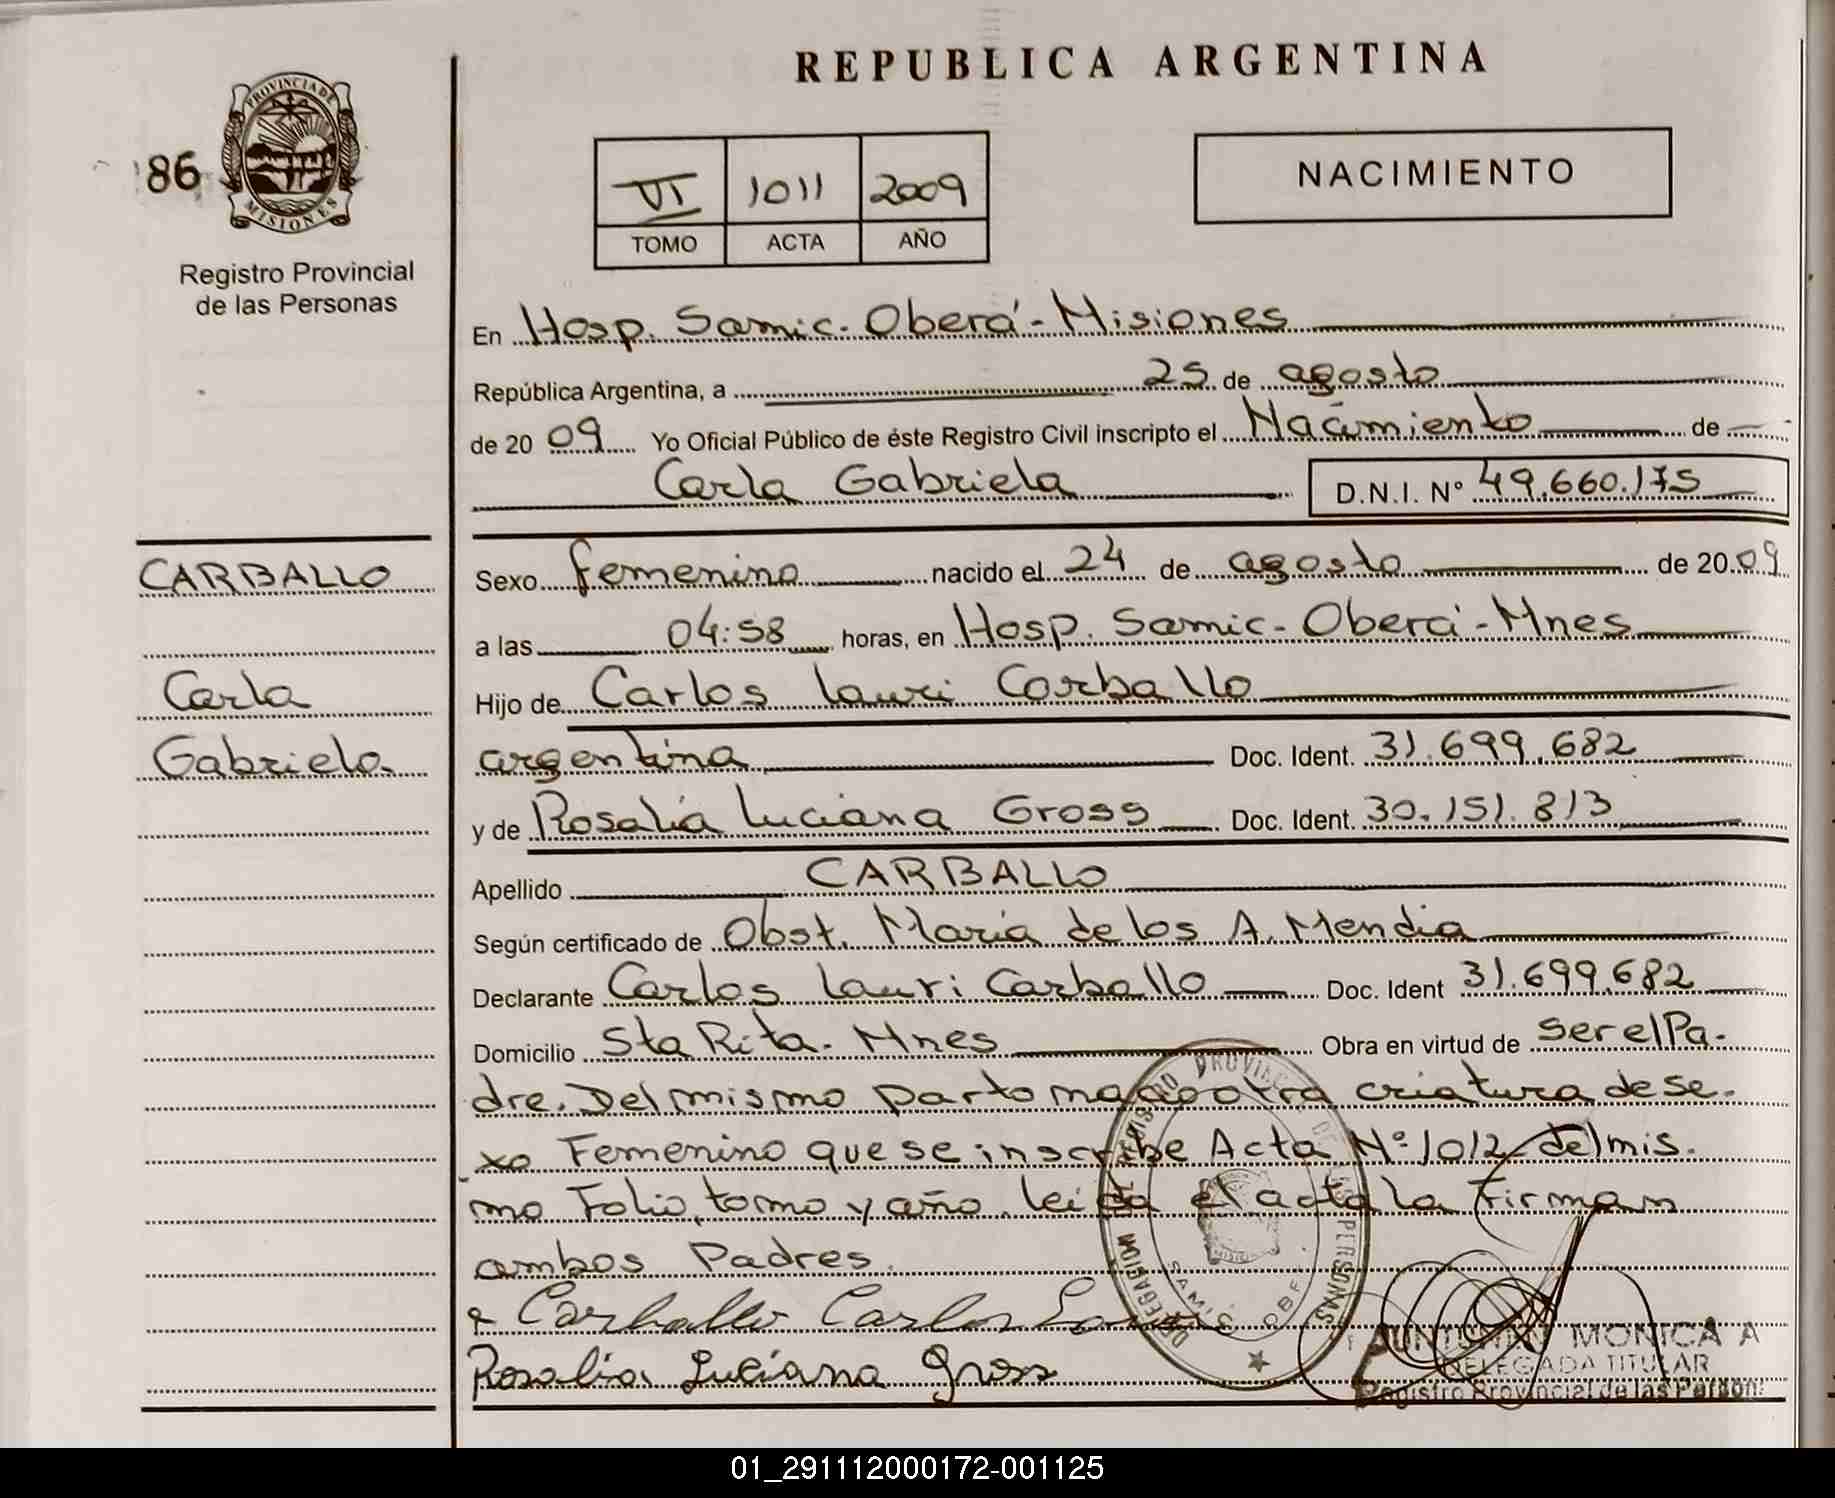 REPUBLICA ARGENTINA
86
PROVINCIA DE
MISIONES
Registro Provincial
de las Personas
VI 1011 2009
TOMO ACTA AÑO
NACIMIENTO
En Hosp. Samic. Oberá - Misiones
República Argentina, a 25 de agosto
de 2009 Yo Oficial Público de éste Registro Civil inscripto el Nacimiento de
Carla Gabriela D.N.I. Nº 49.660.175
CARBALLO
Carla
Gabriela
Sexo femenino nacido el 24 de agosto de 2009
a las 04:58 horas, en Hosp. Samic - Oberá - Mnes
Hijo de Carlos Lauri Carballo
argentina Doc. Ident. 31.699.682
y de Rosalia Luciana Gross Doc. Ident. 30.151.813
Apellido CARBALLO
Según certificado de Obst. María de los A. Mendia
Declarante Carlos Lauri Carballo Doc. Ident 31.699.682
Domicilio Sta Rita. Mnes Obra en virtud de ser el Pa-
dre. Del mismo parto nacio otra criatura de se-
xo Femenino que se inscribe Acta Nº 1012 del mis-
mo Folio, tomo y año. leida el acta la Firman
ambos Padres.
Carballo Carlos
Rosalia Luciana Gross
PERSONAS
DELEGACION
SAMIC
MONICA A
DELEGADA TITULAR
Registro Provincial de las Person
01_291112000172-001125